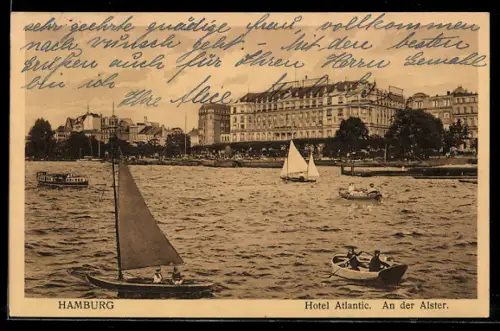 sehr geehrte gnädige Frau, vollkommen
nach wunsch geht - Mit den besten
Grüßen auch für Ihren Herrn Gemahl
bin ich
Ihre
HAMBURG
Hotel Atlantic. An der Alster.